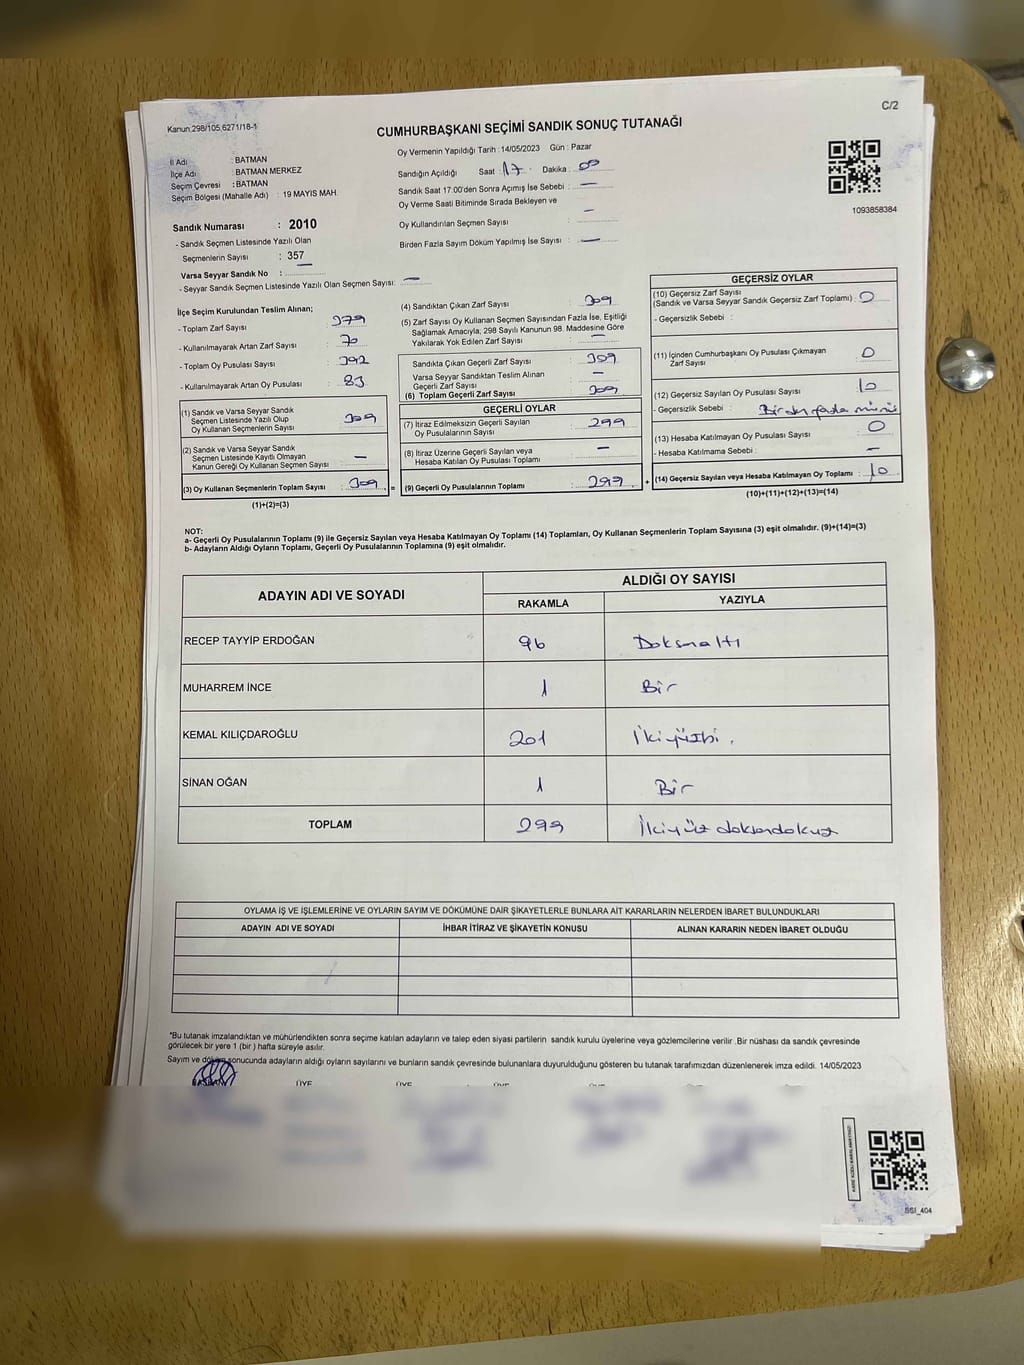 C/2
Kanun 298/105,6271/18-1
CUMHURBAŞKANI SEÇİMİ SANDIK SONUÇ TUTANAĞI
İl Adı : BATMAN
İlçe Adı : BATMAN MERKEZ
Seçim Çevresi : BATMAN
Seçim Bölgesi (Mahalle Adı) : 19 MAYIS MAH.
Sandık Numarası : 2010
- Sandık Seçmen Listesinde Yazılı Olan
Seçmenlerin Sayısı : 357
Varsa Seyyar Sandık No : —
- Seyyar Sandık Seçmen Listesinde Yazılı Olan Seçmen Sayısı: —
Oy Vermenin Yapıldığı Tarih : 14/05/2023 Gün : Pazar
Sandığın Açıldığı Saat : 17 Dakika : 00
Sandık Saat 17:00'den Sonra Açımış İse Sebebi : —
Oy Verme Saati Bitiminde Sırada Bekleyen ve
Oy Kullandırılan Seçmen Sayısı : —
Birden Fazla Sayım Döküm Yapılmış İse Sayısı : —
1093858384
İlçe Seçim Kurulundan Teslim Alınan;
- Toplam Zarf Sayısı : 379
- Kullanılmayarak Artan Zarf Sayısı : 70
- Toplam Oy Pusulası Sayısı : 392
- Kullanılmayarak Artan Oy Pusulası : 83
(1) Sandık ve Varsa Seyyar Sandık
Seçmen Listesinde Yazılı Olup
Oy Kullanan Seçmenlerin Sayısı : 309
(2) Sandık ve Varsa Seyyar Sandık
Seçmen Listesinde Kayıtlı Olmayan
Kanun Gereği Oy Kullanan Seçmen Sayısı : —
(3) Oy Kullanan Seçmenlerin Toplam Sayısı : 309 =
(1)+(2)=(3)
(4) Sandıktan Çıkan Zarf Sayısı : 309
(5) Zarf Sayısı Oy Kullanan Seçmen Sayısından Fazla İse, Eşitliği
Sağlamak Amacıyla, 298 Sayılı Kanunun 98. Maddesine Göre
Yakılarak Yok Edilen Zarf Sayısı : —
Sandıkta Çıkan Geçerli Zarf Sayısı : 309
Varsa Seyyar Sandıktan Teslim Alınan
Geçerli Zarf Sayısı : —
(6) Toplam Geçerli Zarf Sayısı : 309
GEÇERLİ OYLAR
(7) İtiraz Edilmeksizin Geçerli Sayılan
Oy Pusulalarının Sayısı : 299
(8) İtiraz Üzerine Geçerli Sayılan veya
Hesaba Katılan Oy Pusulası Toplamı : —
(9) Geçerli Oy Pusulalarının Toplamı : 299 +
GEÇERSİZ OYLAR
(10) Geçersiz Zarf Sayısı
(Sandık ve Varsa Seyyar Sandık Geçersiz Zarf Toplamı) : 0
- Geçersizlik Sebebi :
(11) İçinden Cumhurbaşkanı Oy Pusulası Çıkmayan
Zarf Sayısı : 0
(12) Geçersiz Sayılan Oy Pusulası Sayısı : 10
- Geçersizlik Sebebi : Birden fazla
(13) Hesaba Katılmayan Oy Pusulası Sayısı : 0
- Hesaba Katılmama Sebebi : —
(14) Geçersiz Sayılan veya Hesaba Katılmayan Oy Toplamı : 10
(10)+(11)+(12)+(13)=(14)
NOT:
a- Geçerli Oy Pusulalarının Toplamı (9) ile Geçersiz Sayılan veya Hesaba Katılmayan Oy Toplamı (14) Toplamları, Oy Kullanan Seçmenlerin Toplam Sayısına (3) eşit olmalıdır. (9)+(14)=(3)
b- Adayların Aldığı Oyların Toplamı, Geçerli Oy Pusulalarının Toplamına (9) eşit olmalıdır.
ADAYIN ADI VE SOYADI ALDIĞI OY SAYISI
RAKAMLA YAZIYLA
RECEP TAYYİP ERDOĞAN 96 Doksnaltı
MUHARREM İNCE 1 Bir
KEMAL KILIÇDAROĞLU 201 İkiyüzbi.
SİNAN OĞAN 1 Bir
TOPLAM 299 İkiyüz doksandokuz
OYLAMA İŞ VE İŞLEMLERİNE VE OYLARIN SAYIM VE DÖKÜMÜNE DAİR ŞİKAYETLERLE BUNLARA AİT KARARLARIN NELERDEN İBARET BULUNDUKLARI
ADAYIN ADI VE SOYADI İHBAR İTİRAZ VE ŞİKAYETİN KONUSU ALINAN KARARIN NEDEN İBARET OLDUĞU
*Bu tutanak imzalandıktan ve mühürlendikten sonra seçime katılan adayların ve talep eden siyasi partilerin sandık kurulu üyelerine veya gözlemcilerine verilir .Bir nüshası da sandık çevresinde
görülecek bir yere 1 (bir ) hafta süreyle asılır.
Sayım ve döküm sonucunda adayların aldığı oyların sayılarını ve bunların sandık çevresinde bulunanlara duyurulduğunu gösteren bu tutanak tarafımızdan düzenlenerek imza edildi. 14/05/2023
BAŞKAN ÜYE ÜYE ÜYE ÜYE
SSI_404